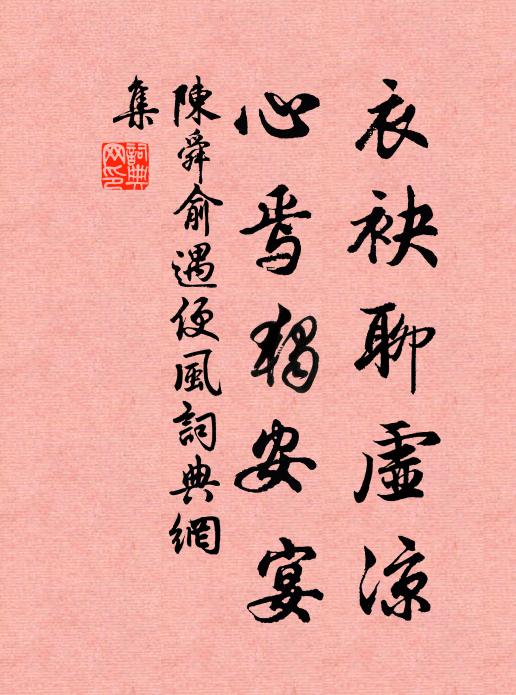 衣袂聊虛涼
心焉獨安宴
陳舜俞遇便風詞典網
集
詞典網印